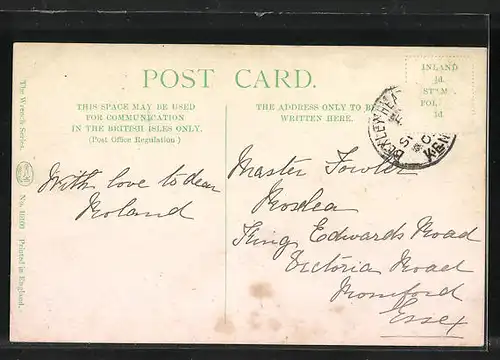 POST CARD.
THIS SPACE MAY BE USED
FOR COMMUNICATION
IN THE BRITISH ISLES ONLY.
(Post Office Regulation)
THE ADDRESS ONLY TO BE
WRITTEN HERE.
INLAND
½d.
STAMP
FOR.
1d.
BEXLEY HEATH
The Wrench Series.
No. Printed in England.
With love to dear
Roland
Master Fowler
Roslea
King Edwards Road
Victoria Road
Romford
Essex